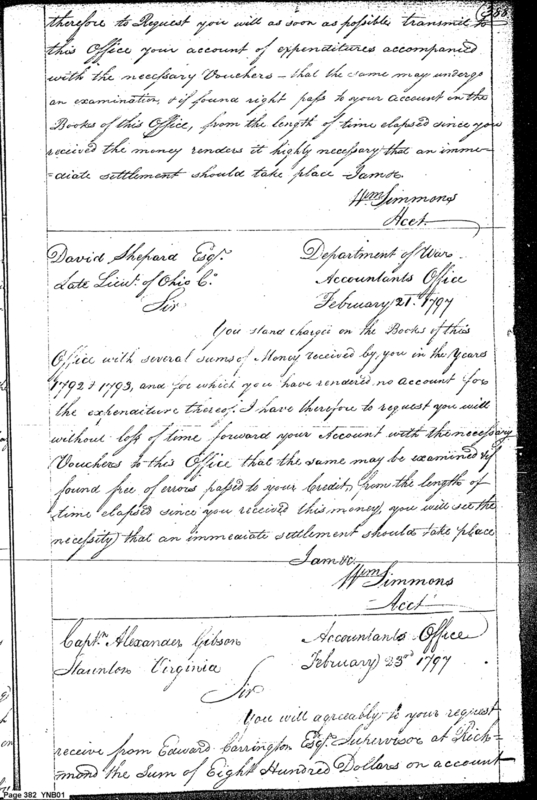 388
therefore to Request you will as soon as possible transmit to
this Office your account of expenditures accompanied
with the necessary Vouchers – that the same may undergo
an examination, & if found right pass to your account in the
Books of this Office, from the length of time elapsed since you
received the money renders it highly necessary that an imme-
-diate settlement should take place I am &c
Wm Simmons
Acct.
David Shepard Esqr. Department of War
Late Lieut. of Ohio Co. Accountants Office
Sir February 21. 1797
You stand charged on the Books of this
Office with several sums of Money received by you in the Years
1792 & 1793, and for which you have rendered no account for
the expenditure thereof. I have therefore to request you will
without loss of time forward your Account with the necessary
Vouchers to this Office that the same may be examined & if
found free of errors passed to your Credit, from the length of
time elapsed since you received this money, you will see the
necessity that an immediate settlement should take place
I am &c
Wm Simmons
Acct
Captn Alexander Gibson Accountants Office
Staunton Virginia February 23d 1797
Sir
You will agreeably to your request
receive from Edward Carrington Esqr. Supervisor at Rich-
mond the Sum of Eight Hundred Dollars on account
Page 382 YNB01